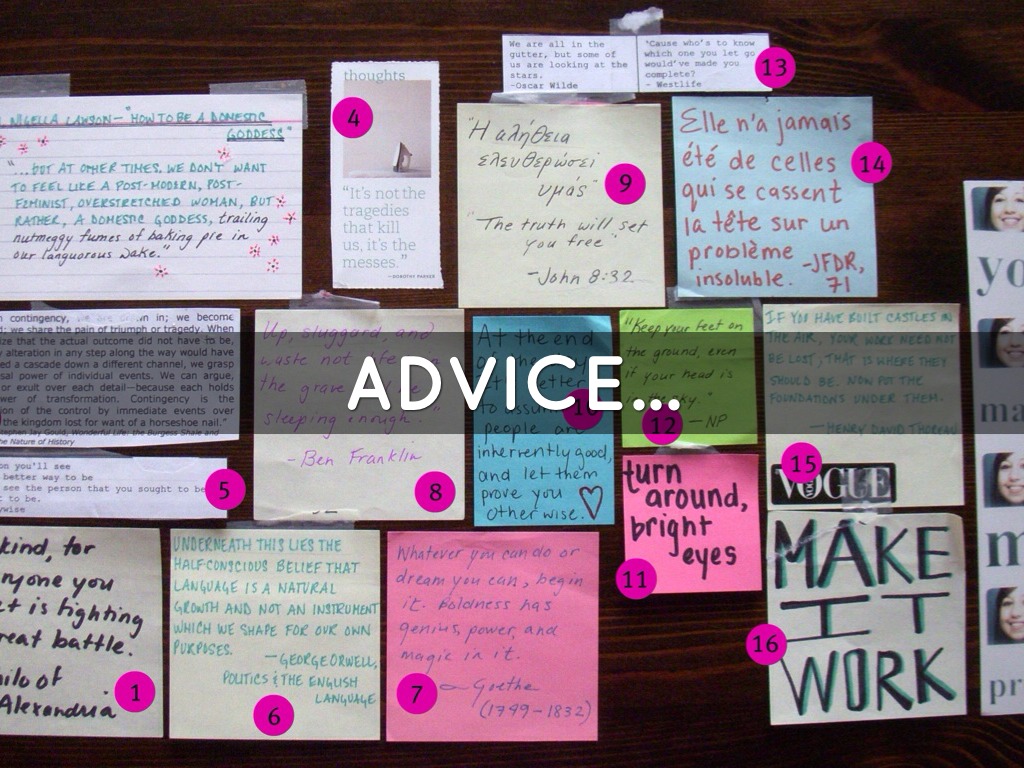 We are all in the
gutter, but some of
us are looking at the
stars.
-Oscar Wilde
'Cause who's to know
which one you let go
would've made you
complete?
- Westlife
13
NIGELLA LAWSON - "HOW TO BE A DOMESTIC
GODDESS"
"...BUT AT OTHER TIMES, WE DON'T WANT
TO FEEL LIKE A POST-MODERN, POST-
FEMINIST, OVERSTRETCHED WOMAN, BUT
RATHER, A DOMESTIC GODDESS, trailing
nutmeggy fumes of baking pie in
our languorous wake."
thoughts
4
"It's not the
tragedies
that kill
us, it's the
messes."
—DOROTHY PARKER
"Η αλήθεια
ελευθερώσει
υμάς"
9
"The truth will set
you free"
-John 8:32
Elle n'a jamais
été de celles
qui se cassent
la tête sur un
problème
insoluble.
-JFDR,
71
14
contingency, in; we become
; we share the pain of triumph or tragedy. When
ize that the actual outcome did not have to be,
alteration in any step along the way would have
d a cascade down a different channel, we grasp
sal power of individual events. We can argue,
or exult over each detail—because each holds
wer of transformation. Contingency is the
ion of the control by immediate events over
the kingdom lost for want of a horseshoe nail."
Stephen Jay Gould, Wonderful Life: the Burgess Shale and
the Nature of History
on you'll see
better way to be
see the person that you sought to be
t to be.
ywise
5
Up, sluggard, and
waste not life
the grave
sleeping enough."
-Ben Franklin
8
At the end
people are
inherently good,
and let them
prove you
otherwise.
10
"Keep your feet on
the ground, even
if your head is
sky."
-NP
12
IF YOU HAVE BUILT CASTLES IN
THE AIR, YOUR WORK NEED NOT
BE LOST; THAT IS WHERE THEY
SHOULD BE. NOW PUT THE
FOUNDATIONS UNDER THEM.
—HENRY DAVID THOREAU
15
VOGUE
ADVICE...
kind, for
ryone you
et is fighting
reat battle.
hilo of
Alexandria
1
UNDERNEATH THIS LIES THE
HALF-CONSCIOUS BELIEF THAT
LANGUAGE IS A NATURAL
GROWTH AND NOT AN INSTRUMENT
WHICH WE SHAPE FOR OUR OWN
PURPOSES.
—GEORGE ORWELL,
POLITICS & THE ENGLISH
LANGUAGE
6
Whatever you can do or
dream you can, begin
it. Boldness has
genius, power, and
magic in it.
Goethe
(1749-1832)
7
turn
around,
bright
eyes
11
MAKE
IT
WORK
16
yo
ma
m
pr